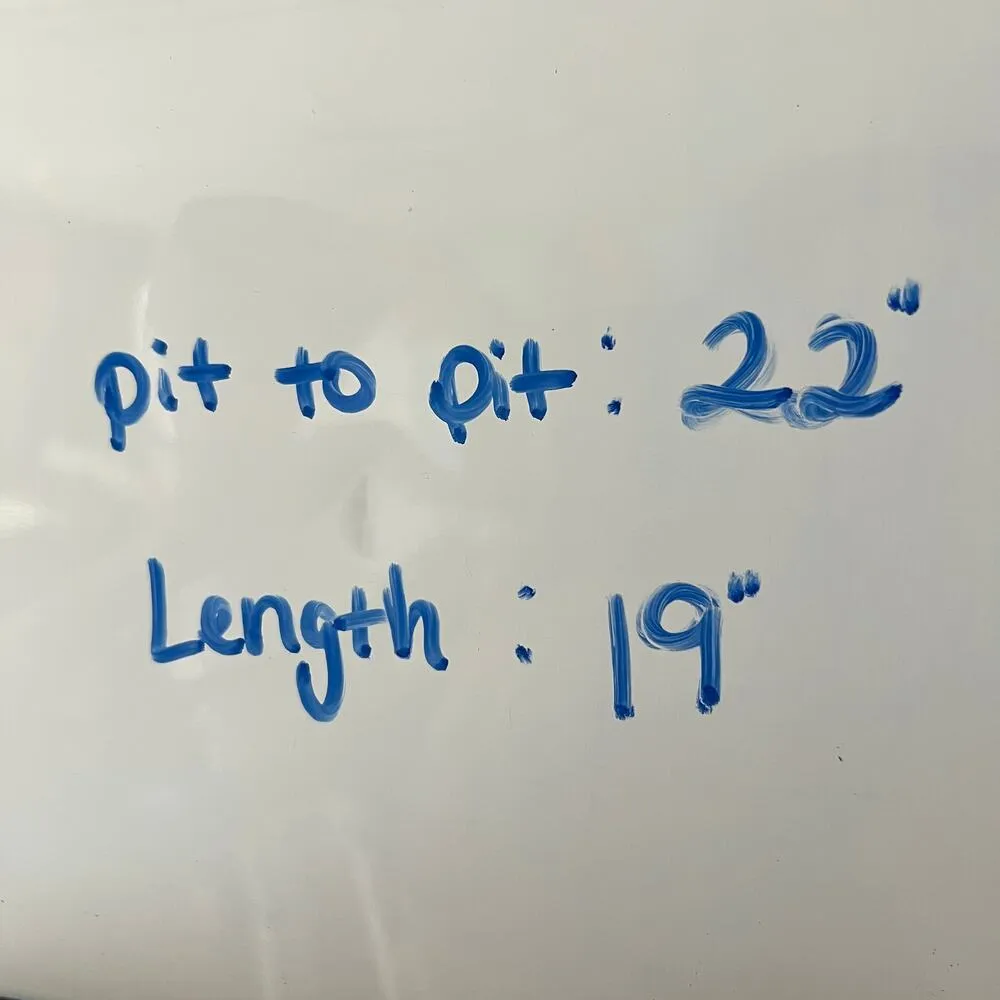 pit to pit : 22"
Length : 19"